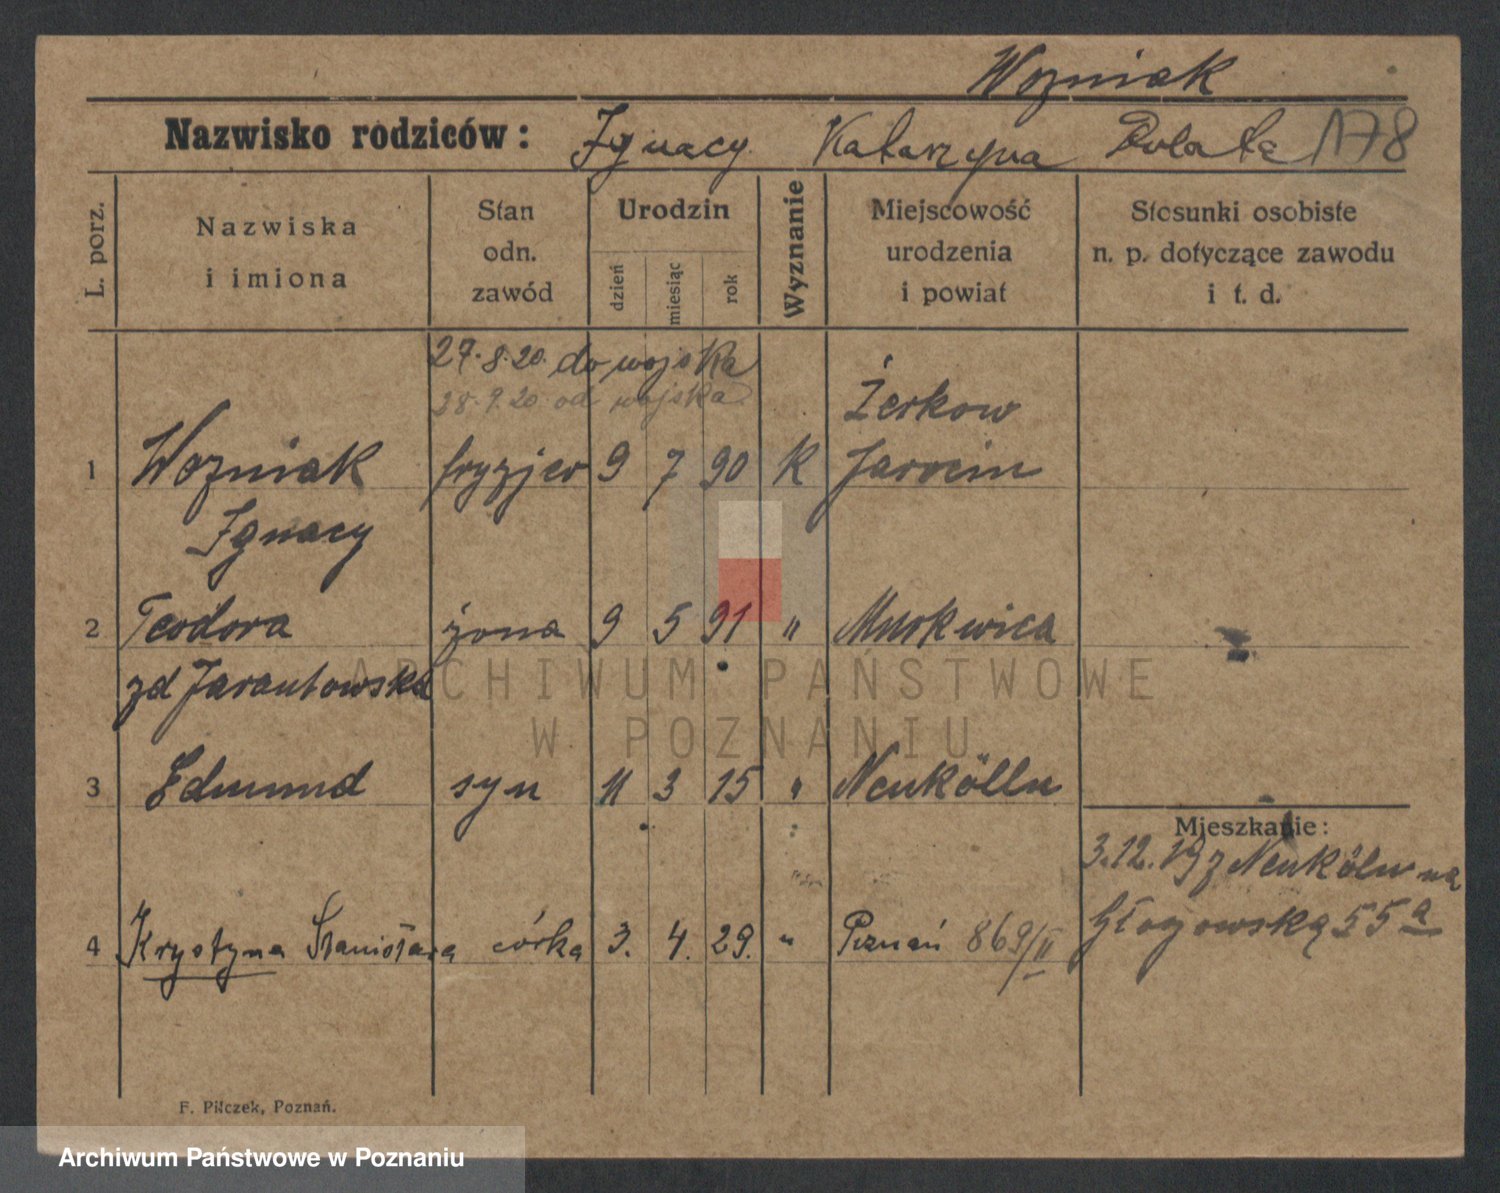 Wozniak
Nazwisko rodziców: Ignacy Katarzyna 178
L. porz.
Nazwiska i imiona
Stan odn. zawód
Urodzin
dzień miesiąc rok
Wyznanie
Miejscowość urodzenia i powiat
Stosunki osobiste n. p. dotyczące zawodu i t. d.
27.8.20. do wojska
28.9.20 od wojska
Żerkow
1 Wozniak fryzjer 9 7 90 K Jarocin
Ignacy
2 Teodora żona 9 5 91 " Murkwica
zd Jarantowska
3 Edmund syn 11 3 15 " Neukölln
Mieszkanie:
3.12.19 z Neukölln na
Głogowską 55a
4 Krystyna Stanisława córka 3. 4. 29. " Poznań 869/II
F. Pilczek, Poznań.
ARCHIWUM PAŃSTWOWE
W POZNANIU
Archiwum Państwowe w Poznaniu